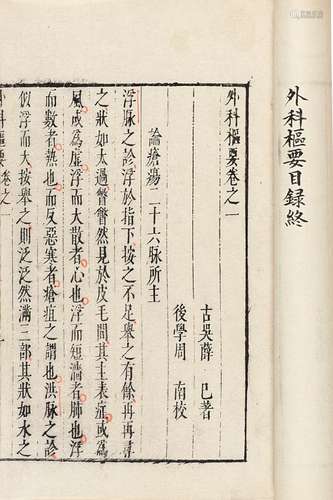 外科樞要目録終
外科樞要卷之一
古吳薛 已著
後學周 南校
論瘡瘍二十六脉所主
浮脉之診浮於指下按之不足舉之有餘再再尋
之狀如太過瞥瞥然見於皮毛間其主表症或為
風或為虛浮而大散者心也浮而短濇者肺也浮
而數者熱也而反惡寒者瘡疽之謂也洪脉之診
似浮而大按舉之則泛泛然滿三部其狀如水之
外科樞要卷之一